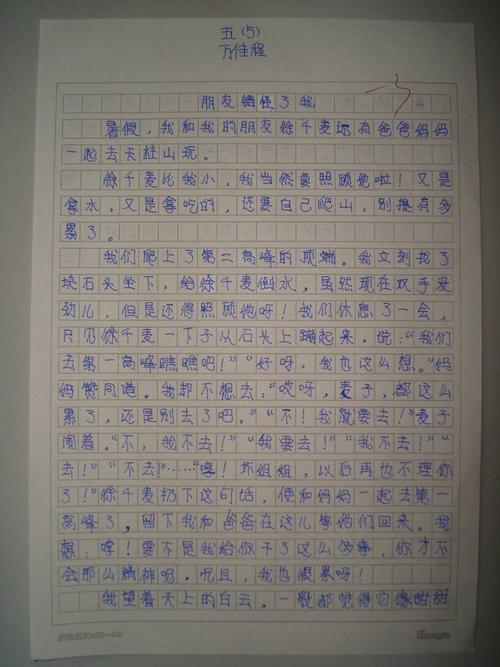 五(5)
万佳程
朋友错怪了我
暑假,我和我的朋友徐千麦还有爸爸妈妈
一起去天柱山玩。
徐千麦比我小,我当然要照顾他啦!又是
拿水,又是拿吃的,还要自己爬山,别提有多
累了。
我们爬上了第二高峰的顶端。我立刻找了
块石头坐下,给徐千麦倒水,虽然现在双手没
劲儿,但是还得照顾他呀!我们休息了一会,
只见徐千麦一下子从石头上蹦起来,说:“我们
去第一高峰瞧瞧吧!”“好呀,我也这么想。”妈
妈赞同道。我却不想去:“哎呀,麦子,都这么
累了,还是别去了吧。”“不!我就要去!”麦子
闹着。“不,我不去!”“我要去!”“我不去!”“
去!”“不去!”……“哼!坏姐姐,以后再也不理你
了!”徐千麦扔下这句话,便和妈妈一起去第一
高峰了,留下我和爸爸在这儿等她们回来。我
想:哼!要不是我给你干了这么多事,你才不
会那么精神呢。况且,我也很累呀!
我望着天上的白云。一般都觉得它像甜甜
20x20=400